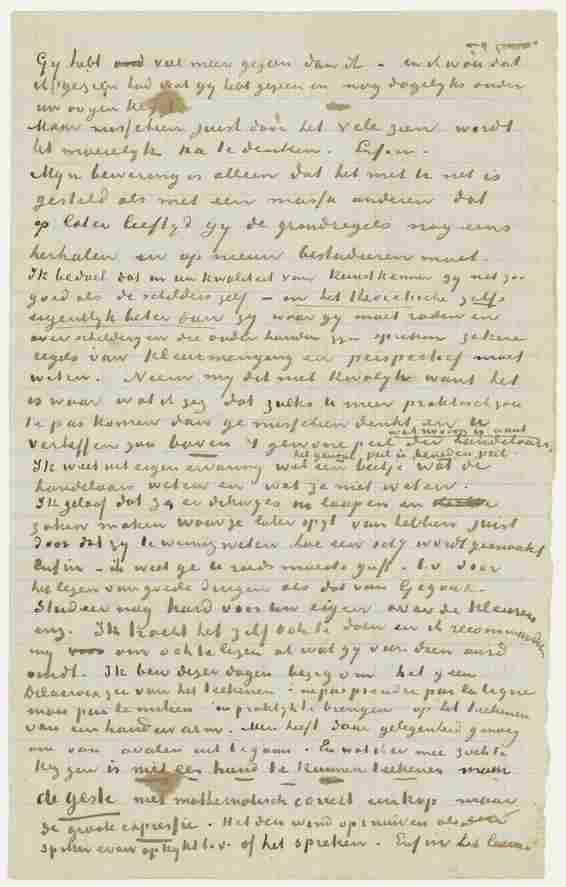 Gy hebt veel meer gezien dan ik – en ik wou dat
ik gezien had wat gy hebt gezien en nog dagelyks onder
uw oogen krygt
Maar misschien juist door het vele zien wordt
het moeielyk na te denken. Enfin.
Myn bewering is alleen dat het met u net is
gesteld als met een massa anderen dat
op later leeftyd gy de grondregels nog eens
herhalen en op nieuw bestudeeren moet.
Ik bedoel dat in uw kwaliteit van kunstkenner gy net zoo
goed als de schilders zelf – en het theoretische zelfs
eigentlyk beter dan zy waar gy moet raden en
over schilderyen die onder handen zyn spreken zekere
regels van kleurmenging en perspectief moet
weten. Neem my dit niet kwalyk want het
is waar wat ik zeg dat zulks u meer praktisch zou
te pas komen dan ge misschien denkt en u
verheffen zou boven 't gewone peil der handelaars,
wat noodig is want
het gewone peil is beneden peil.
Ik weet uit eigen ervaring wel een beetje wat de
handelaars weten en wat ze niet weten.
Ik geloof dat ze er dikwyls in loopen en
zaken maken waar ze later spyt van hebben juist
door dat zy te weinig weten hoe een schy wordt gemaakt
Enfin – ik weet ge u reeds moeite geeft b.v. door
het lezen van goede dingen als dat van Gigoux.
Studeer nog hard voor uw eigen over de kleuren
enz. Ik tracht het zelf ook te doen en ik recommandeer
my om ook te lezen al wat gy van dien aard
vindt. Ik ben dezer dagen bezig om het geen
Delacroix zei van het teekenen – ne pas prendre par la ligne
mais par le milieu in praktyk te brengen op het teekenen
van een hand en arm. Men heeft daar gelegenheid genoeg
om van ovalen uit te gaan. En wat ik er mee zoek te
krygen is niet een hand te kunnen teekenen maar
de geste niet mathematisch correct een kop maar
de groote expressie. Het den wind opsnuiven als een
spitter even opkykt b.v. of het spreken. Enfin het leven